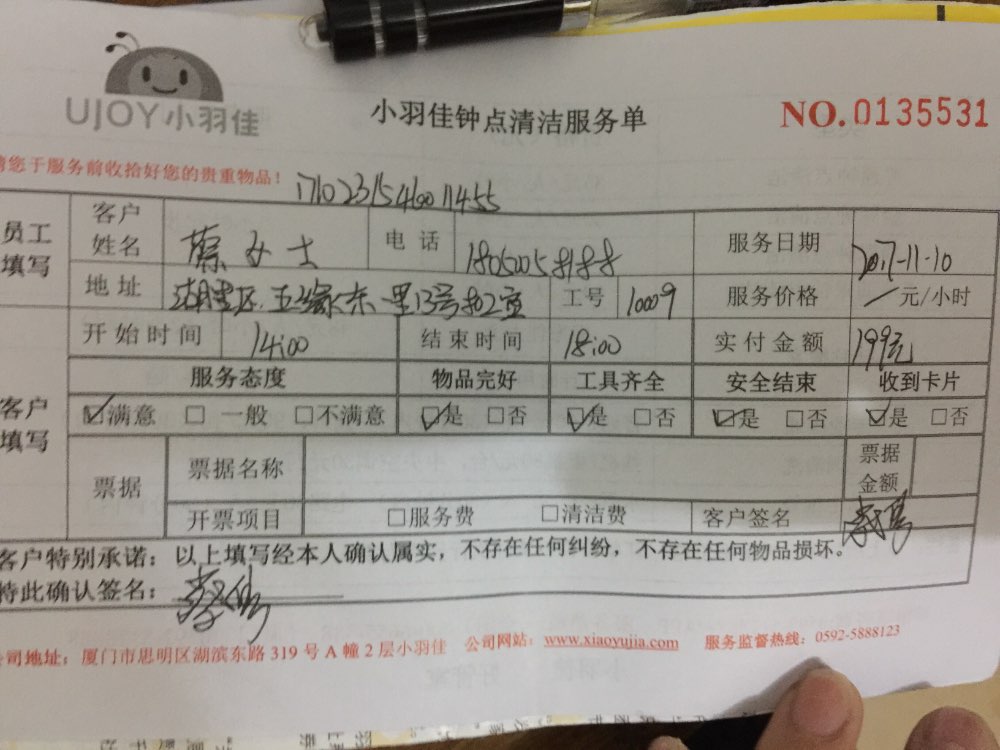 UJOY小羽佳
小羽佳钟点清洁服务单
NO.0135531
请您于服务前收拾好您的贵重物品！
1710231546011455
员工填写 客户姓名 蔡女士 电话 18050058188 服务日期 2017-11-10
地址 湖里区.五缘东一里13号 室 工号 10009 服务价格 / 元/小时
客户填写 开始时间 14:00 结束时间 18:00 实付金额 199元
服务态度 物品完好 工具齐全 安全结束 收到卡片
☑满意 □一般 □不满意 ☑是 □否 ☑是 □否 ☑是 □否 ☑是 □否
票据 票据名称 票据金额
开票项目 □服务费 □清洁费 客户签名
客户特别承诺：以上填写经本人确认属实，不存在任何纠纷，不存在任何物品损坏。
特此确认签名：
公司地址：厦门市思明区湖滨东路319号A幢2层小羽佳 公司网站：www.xiaoyujia.com 服务监督热线：0592-5888123